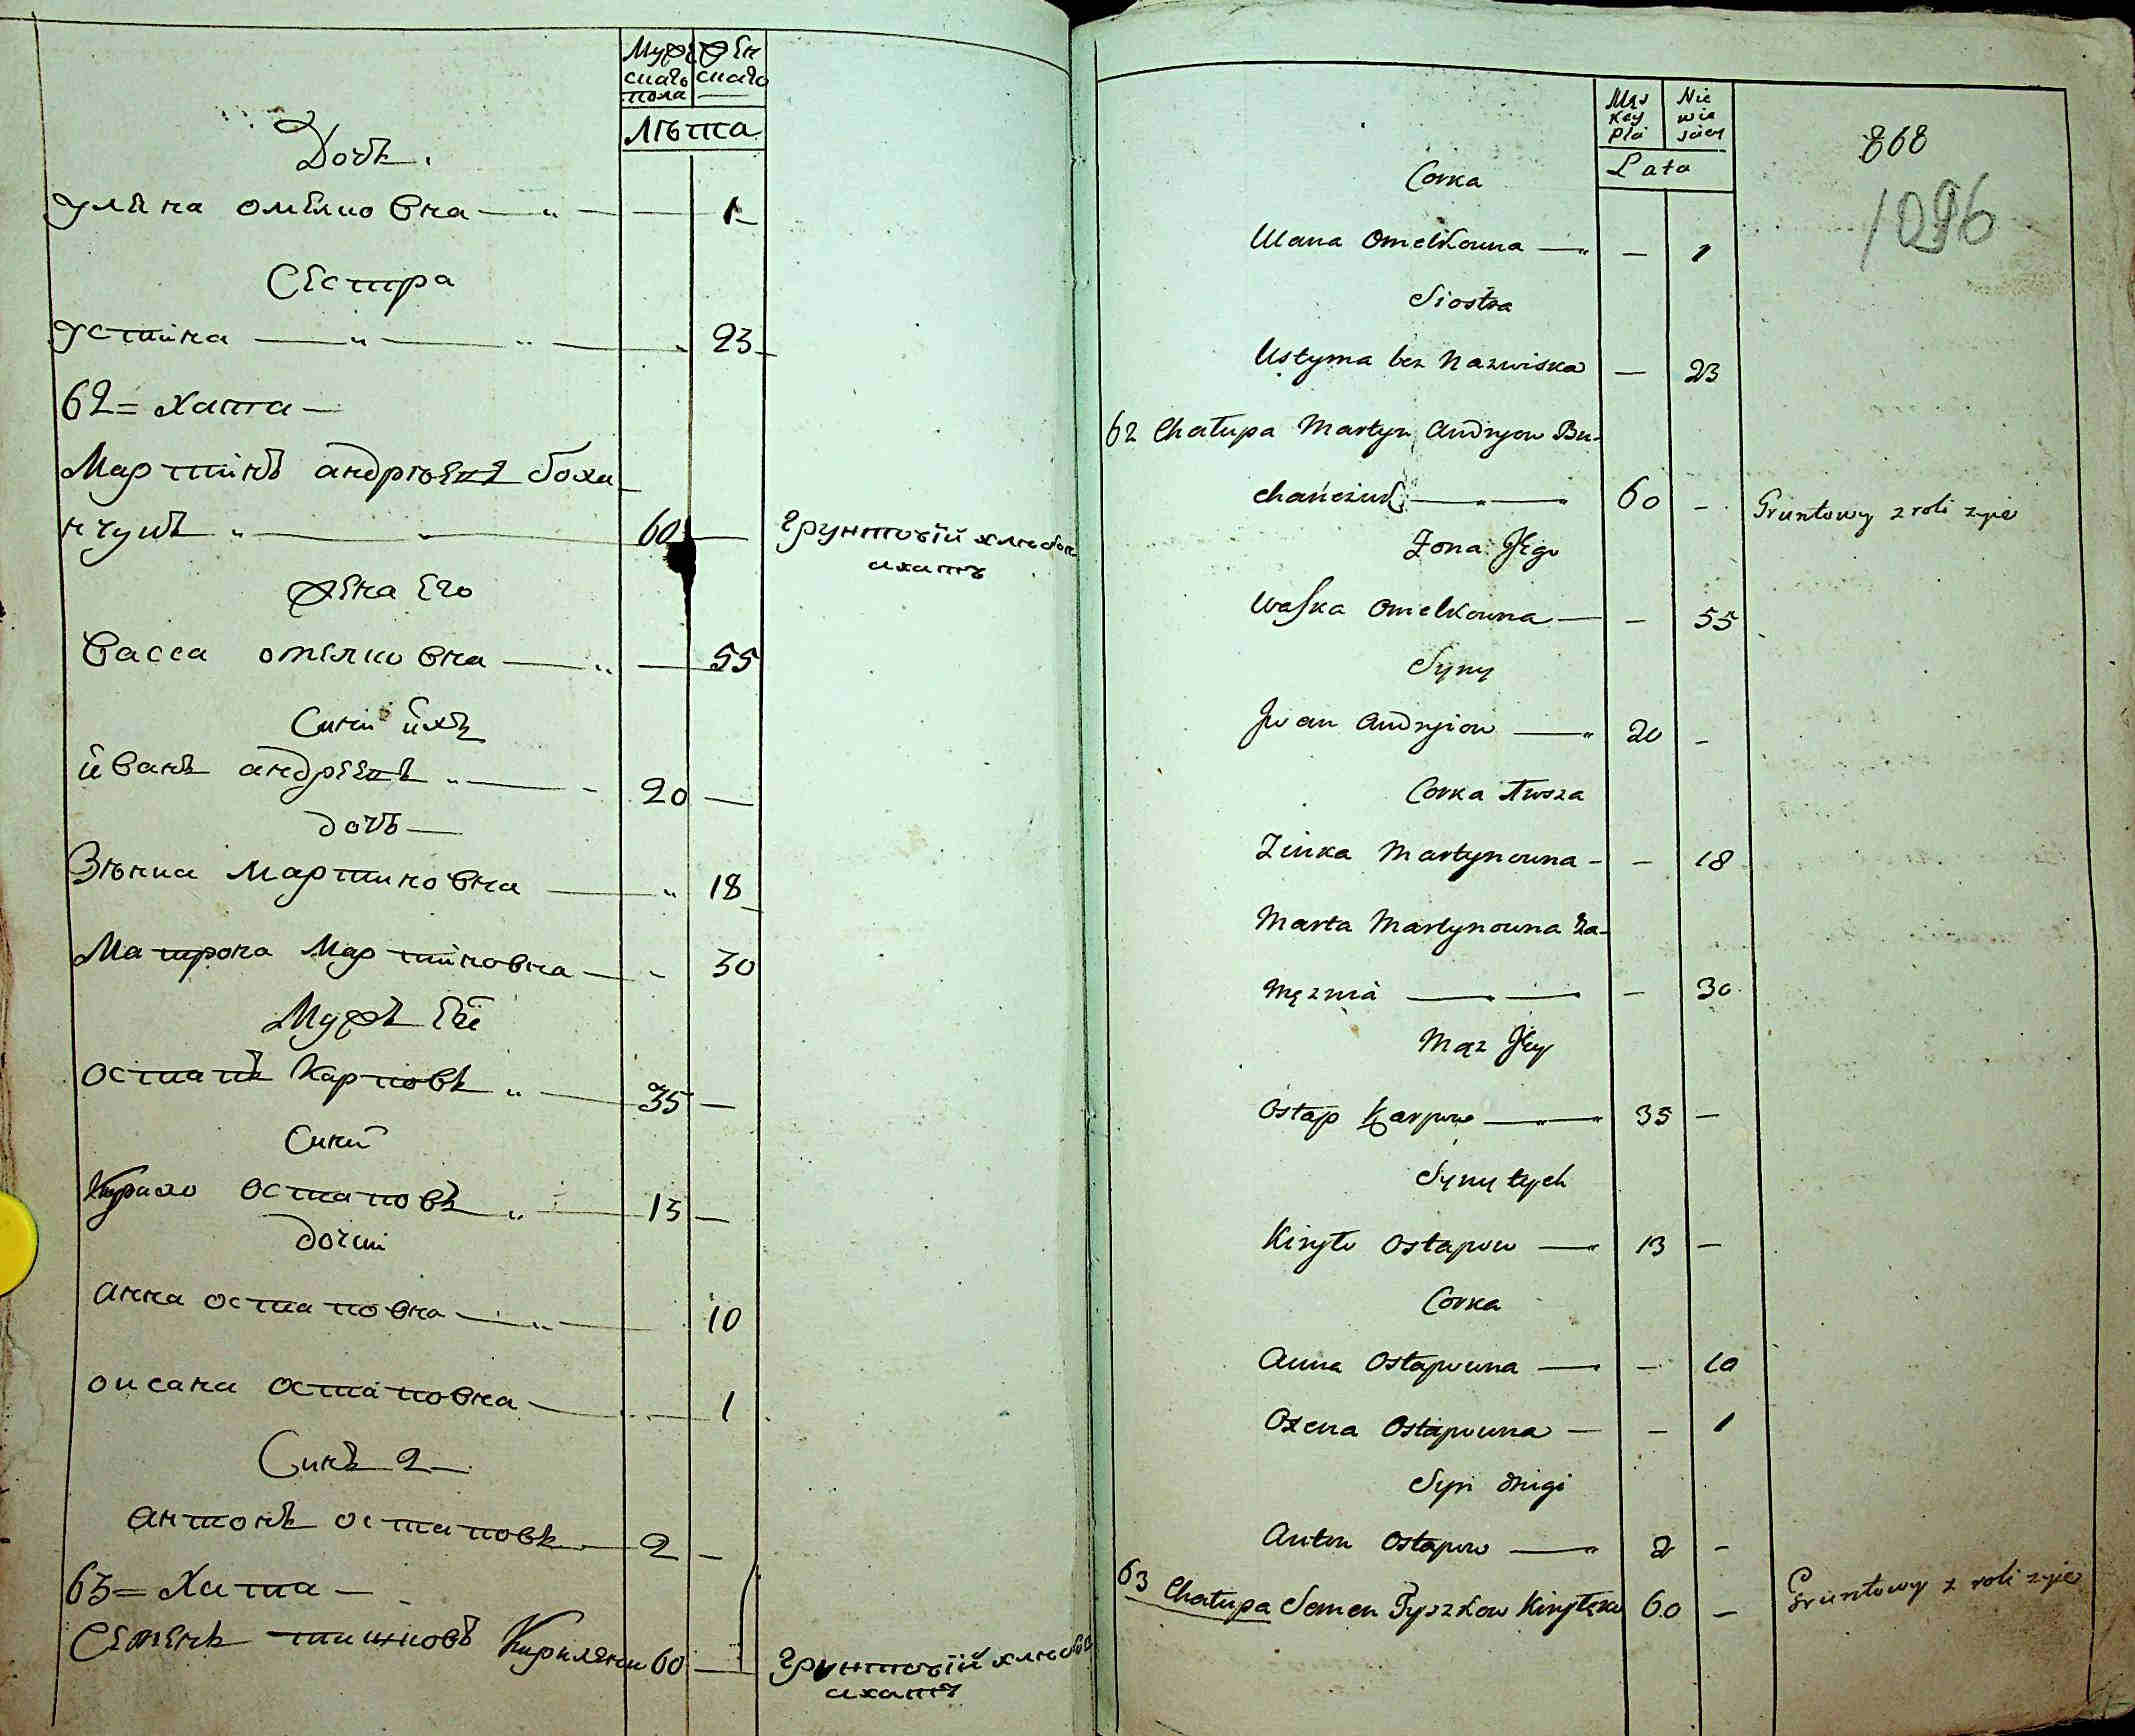 Мужескаго пола
Женскаго
Лѣта
Дочь.
Уляна омелковна — 1
Сестра
Устина — 23
62 = хата —
Мартинъ андрѣевъ боха-
нчукъ — 60 — грунтовій хлѣбо-
ахатъ
Жена его
Васса омелковна — 55
Сини ихъ
иванъ андреевъ — 20 —
дочь —
Зѣнка Мартиновна — 18
Матрона Мартиновна — 30
Мужъ еїе
остапъ Карповъ — 35 —
Сини
Кирило остаповъ — 13 —
дочки
анна остаповна — 10
оксана остаповна — 1
Синъ 2 —
антонъ остаповъ — 2 —
63 = Хата —
Семенъ тишковъ 60 — грунтовій хлѣбо-
ахатъ
868
1096
Lata
Corka
Ulana Omelkowna — — 1
Siostra
Ustyma bez Nazwiska — 23
62 Chałupa Martyn Andryow Bu-
chańczuk — 60 - Gruntowy z roli zyie
Zona Jego
Waska Omelkowna — — 55
Syny
Jwan Andryiow — 20 -
Corka
Zinka Martynowna - — 18
Marta Martynowna Za-
mężnia — — 30
Mąz Jey
Ostap Karpow — 35 —
Syny tych
Kiryło Ostapow — 13 —
Corka
Anna Ostapowna — — 10
Oxena Ostapowna — — 1
Syn drugi
Anton Ostapow — 2 -
63 Chałupa Semen Tyszkow 60 — Gruntowy z roli zyie